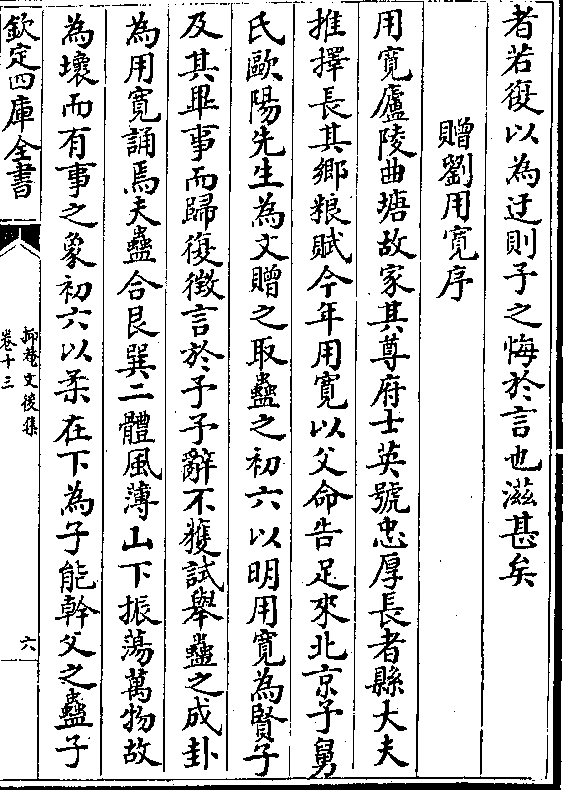 者若復以為迂則予之悔於言也滋甚矣
贈劉用寛序
用寛廬陵曲塘故家其尊府士英號忠厚長者縣大夫
推擇長其鄉粮賦今年用寛以父命告足來北京予舅
氏歐陽先生為文贈之取蠱之初六以明用寛為賢子
及其畢事而歸復徵言於予予辭不獲試舉蠱之成卦
為用寛誦焉夫蠱合艮巽二體風薄山下振蕩萬物故
為壊而有事之象初六以柔在下為子能幹父之蠱子
欽定四庫全書
抑菴文後集
卷十三
六